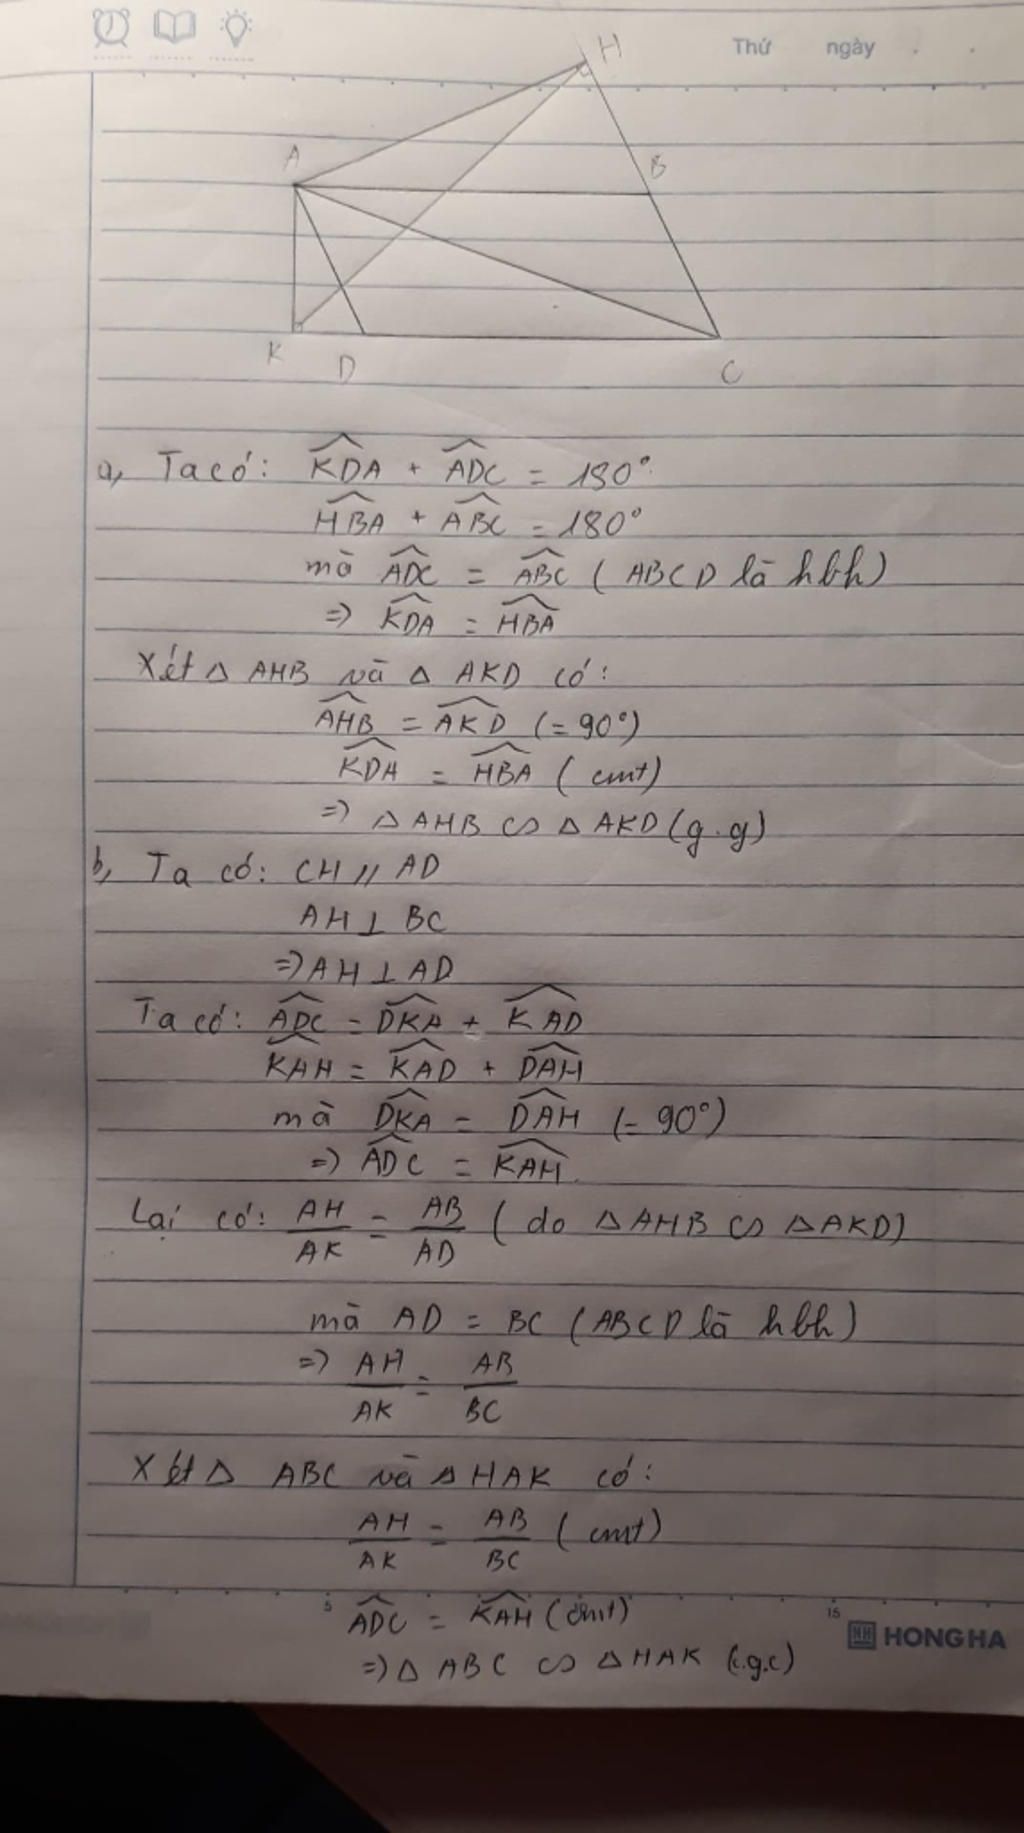 Thứ ngày
H
A
B
K
D
C
a, Ta có: KDA + ADC = 180°.
HBA + ABC = 180°
mà ADC = ABC ( ABCD là hbh)
=> KDA = HBA
Xét △ AHB và △ AKD có:
AHB = AKD (= 90°)
KDA = HBA ( cmt)
=> △ AHB ∽ △ AKD (g.g)
b, Ta có: CH // AD
AH ⊥ BC
=> AH ⊥ AD
Ta có: ADC = DKA + KAD
KAH = KAD + DAH
mà DKA = DAH (= 90°)
=> ADC = KAH.
Lại có: AH/AK = AB/AD ( do △ AHB ∽ △ AKD)
mà AD = BC (ABCD là hbh)
=> AH/AK = AB/BC
Xét △ ABC và △ HAK có:
AH/AK = AB/BC ( cmt)
ADC = KAH (cmt)
=> △ ABC ∽ △ HAK (c.g.c)
5
15
HH HONG HA